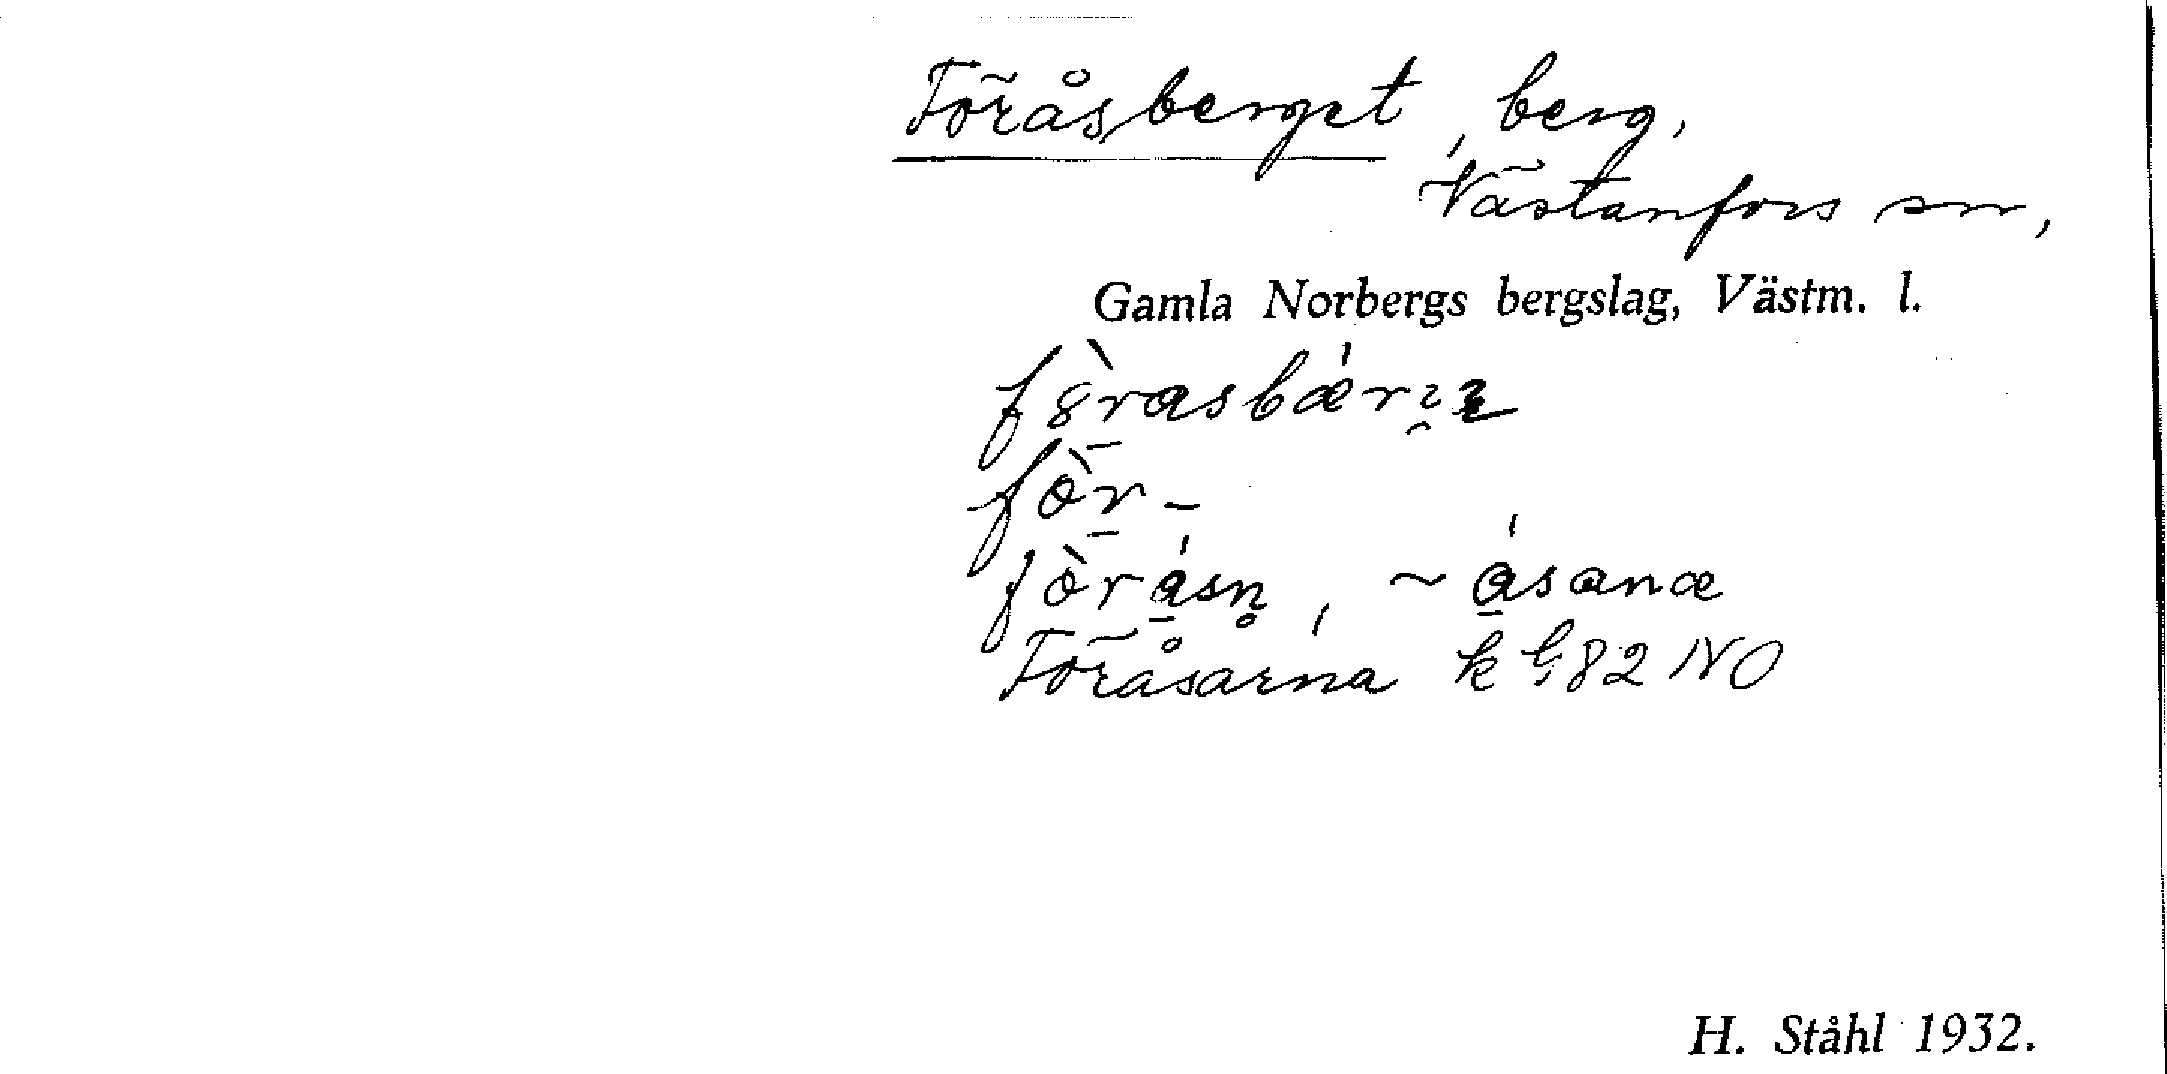 Föråsberget, berg,
Västanfors sn,
Gamla Norbergs bergslag, Västm. l.
fòr-
fòråsn̥, ~åsana
Föråsarna k bl 82 NO
H. Ståhl 1932.